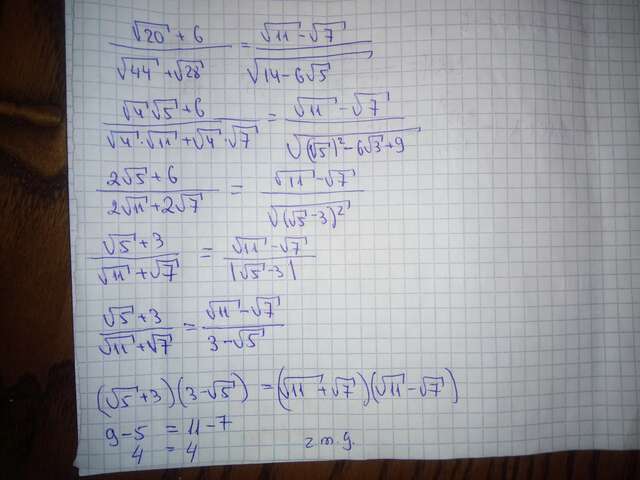 (√20 + 6)/(√44 + √28) = (√11 - √7)/√(14 - 6√5)
(√4 √5 + 6)/(√4 · √11 + √4 · √7) = (√11 - √7)/√((√5)² - 6√3 + 9)
(2√5 + 6)/(2√11 + 2√7) = (√11 - √7)/√((√5 - 3)²)
(√5 + 3)/(√11 + √7) = (√11 - √7)/|√5 - 3|
(√5 + 3)/(√11 + √7) = (√11 - √7)/(3 - √5)
(√5 + 3)(3 - √5) = (√11 + √7)(√11 - √7)
9 - 5 = 11 - 7
4 = 4 ч.т.д.